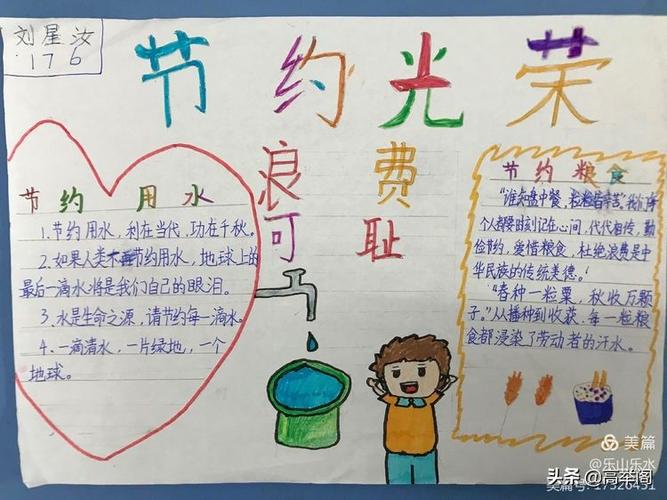 刘星汝
176
节约光荣
浪费
可耻
节约用水
1.节约用水，利在当代，功在千秋。
2.如果人类不节约用水，地球上的
最后一滴水将是我们自己的眼泪。
3.水是生命之源，请节约每一滴水。
4.一滴清水，一片绿地，一个
地球。
节约粮食
"谁知盘中餐，粒粒皆辛苦"我们每
个人都要时刻记在心间，代代相传，勤
俭节约，爱惜粮食，杜绝浪费是中
华民族的传统美德。
"春种一粒粟，秋收万颗
子。"从播种到收获，每一粒粮
食都浸染了劳动者的汗水。
美篇
@乐山乐水
头条 @高举阁
美篇号:17326451